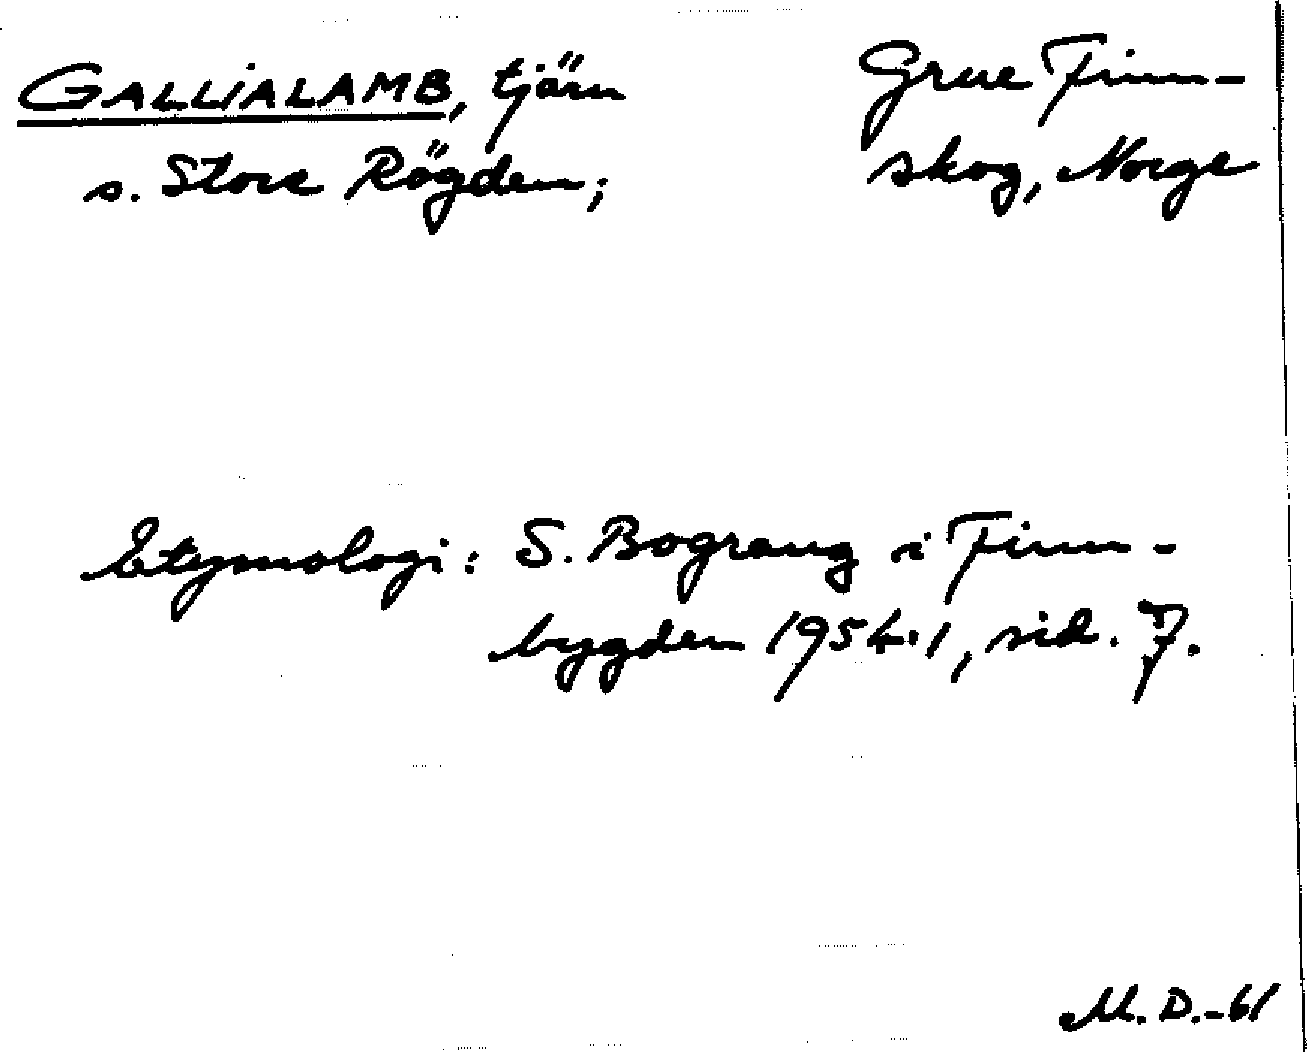 GALLIALAMB, tjärn
s. Store Rögden;
Grue Finn-
skog, Norge
Etymologi: S. Bograng i Finn-
bygden 1954:1, sid. 7.
M. D.-61